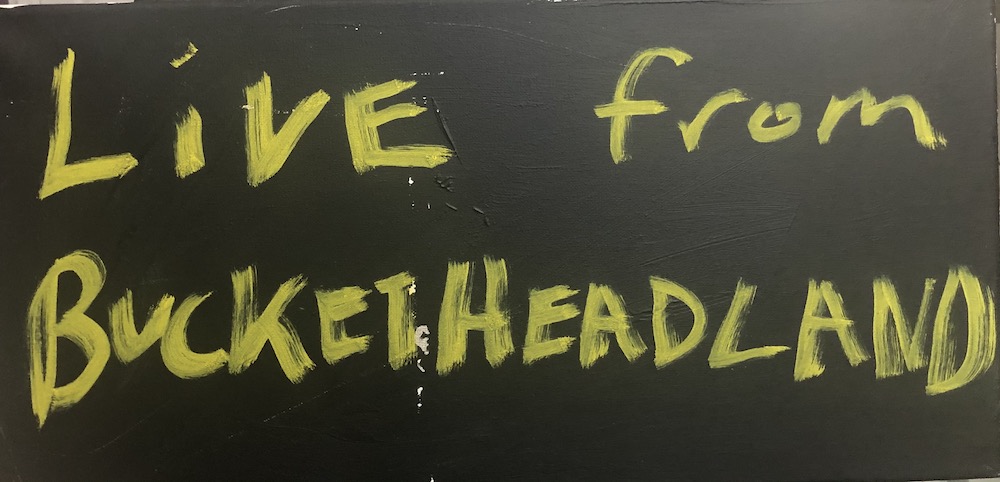 Live from
BUCKETHEADLAND